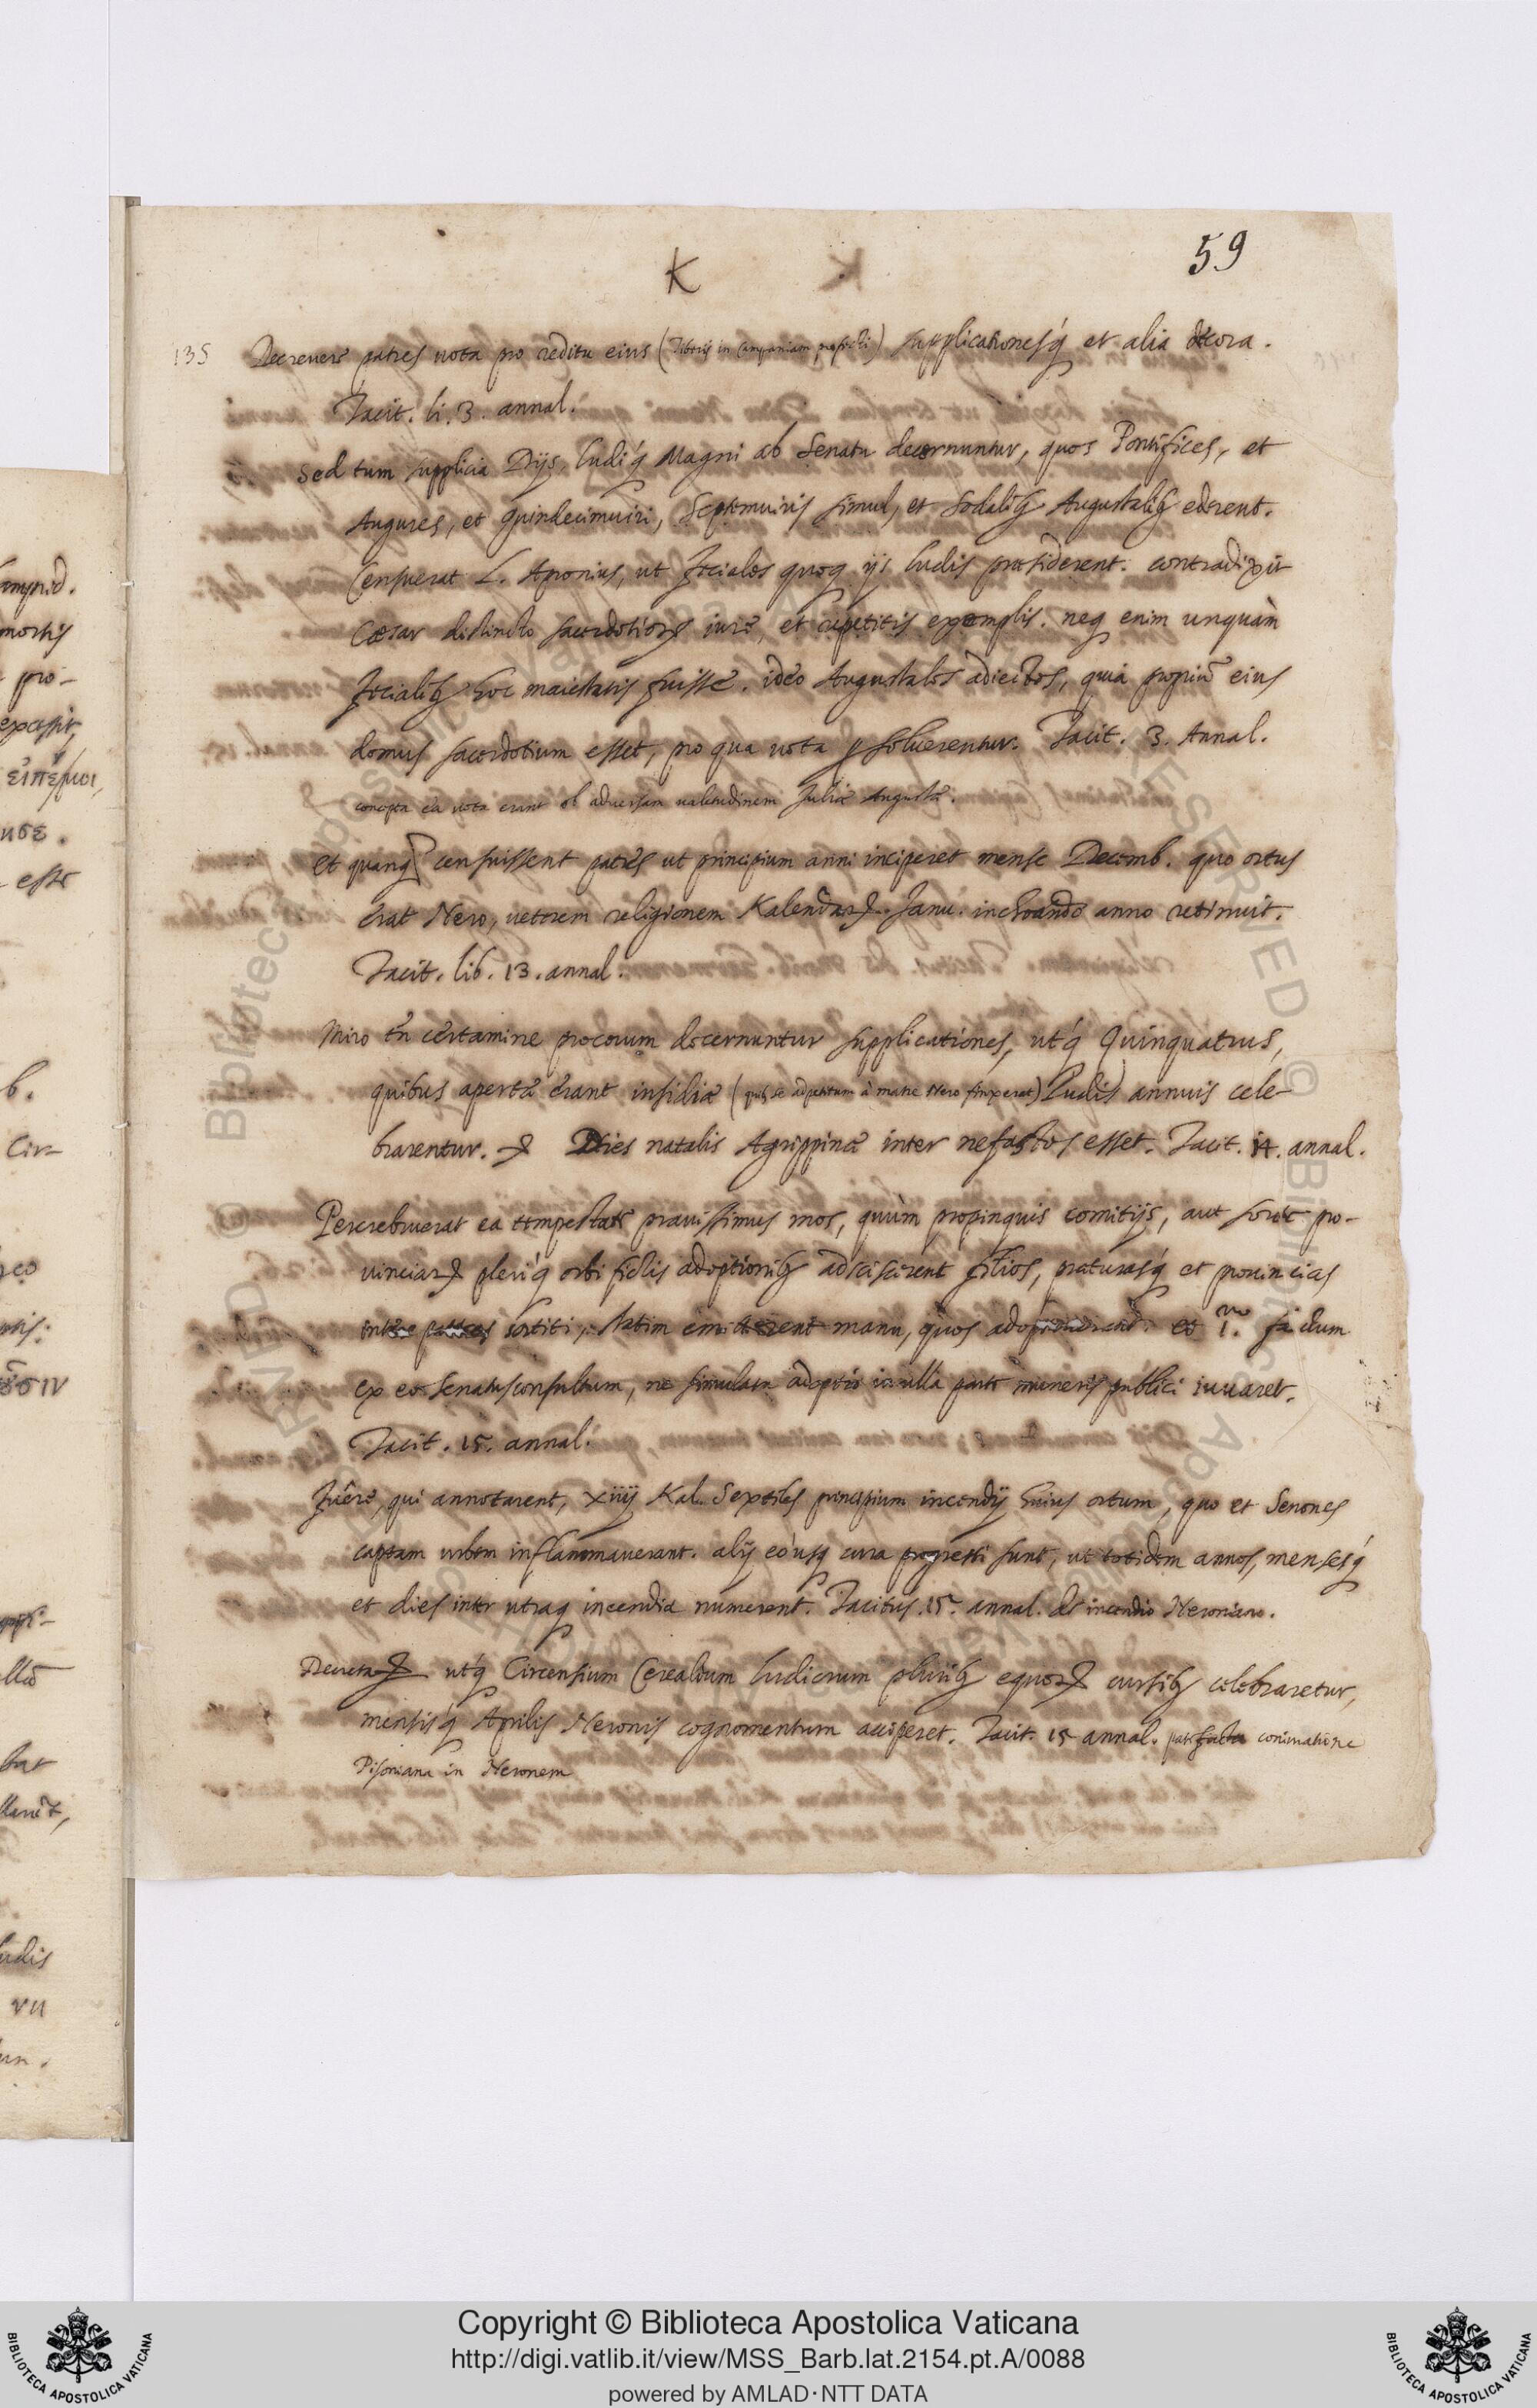 K
59
135 Decreuere patres uota pro reditu eius (Tiberij in Campaniam profecti) supplicationesq́ et alia decora.
Tacit. li. 3. annal.
Sed tum supplicia Dijs, ludiq́ Magni ab Senatu decernuntur, quos Pontifices, et
Augures, et Quindecimuiri, Septemuiris simul, et Sodalibꝫ Augustalibꝫ ederent.
Censuerat L. Apronius, ut Feciales quoq ijs ludis præsiderent. contradixit
Cæsar distincto sacerdotioꝝ iure, et repetitis exemplis. neq enim unquàm
Fecialibꝫ hoc maiestatis fuisse. ideo Augustales adiectos, quia propriũ eius
domus sacerdotium esset, pro qua uota ꝑsoluerentur. Tacit. 3. Annal.
concepta ea uota erant ob aduersam ualetudinem Juliæ Augustæ.
Et quanq censuissent patres ut principium anni inciperet mense Decemb. quo ortus
erat Nero, ueterem religionem Kalendaꝝ. Janu. inchoando anno retinuit.
Tacit. lib. 13. annal.
Miro tñ certamine procerum decernuntur supplicationes, utq́ Quinquatrus,
quibus apertæ erant insidiæ (quibꝫ se adpetitum à matre Nero finxerat) Ludis annuis cele-
brarentur. Dies natalis Agrippinæ inter nefastos esset. Tacit. 14. annal.
Percrebruerat ea tempestate prauissimus mos, quùm propinquis comitijs, aut sorte pro-
uinciaꝝ pleriq́ orbi fictis adoptionibꝫ adsciscerent filios, præturasq́ et prouincias
inter patres sortiti, statim emitterent manu, quos adoptauerant. et factum
ex eo senatusconsultum, ne simulata adoptio in ulla parte muneris publici iuuaret.
Tacit. 15. annal.
Fuêre, qui annotarent, XIIIj Kal. Sextiles principium incendij huius ortum, quo et Senones
captam urbem inflammauerant. alij eo usq cura progressi sunt, ut totidem annos, mensesq́
et dies inter utraq incendia numerent. Tacitus. 15. annal. de incendio Neroniano.
Decreta utq́ Circensium Cerealium ludicrum pluribꝫ equoꝝ cursibꝫ celebraretur,
mensisq́ Aprilis Neronis cognomentum acciperet. Tacit. 15 annal. patefacta coniuratione
Pisoniana in Neronem
Copyright © Biblioteca Apostolica Vaticana
http://digi.vatlib.it/view/MSS_Barb.lat.2154.pt.A/0088
powered by AMLAD·NTT DATA
BIBLIOTECA APOSTOLICA VATICANA
BIBLIOTECA APOSTOLICA VATICANA